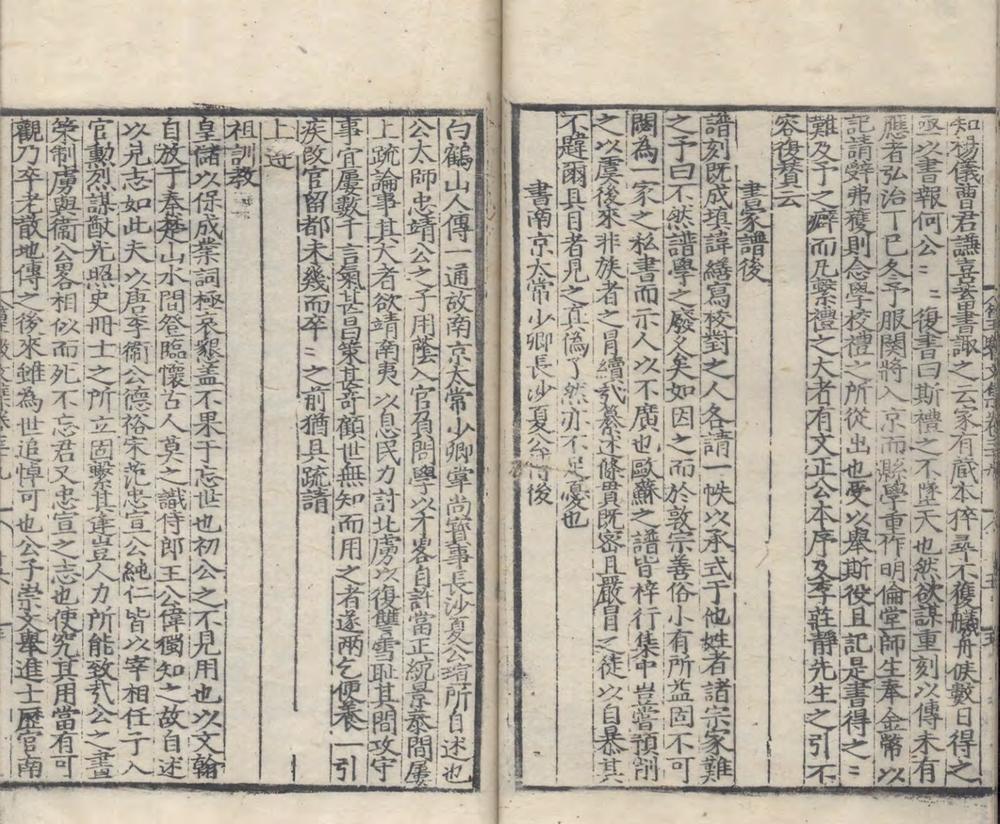 知楊儀曹君謙喜蓄書諏之云家有蔵本猝尋不獲艤舟候數日得之
亟以書報何公〻〻復書曰斯禮之不墜天也然欲謀重刻以傳未有
應者弘治丁巳冬予服闋將入京而縣學重作明倫堂師生奉金幣以
記請辭弗獲則念學校禮之所從出也受以舉斯役且記是書得之〻
難及予之癖而凡繫禮之大者有文正公本序及李莊靜先生之引不
容復贅云
書家譜後
譜刻既成項諱繕寫校對之人各請一帙以承式于他姓者諸宗家難
之予曰不然譜學之廢久矣如因之而於敦宗善俗小有所益固不可
閟為一家之私書而示人以不廣也歐蘇之譜皆梓行集中豈嘗預削
之以虞後來非族者之冒續㢤纂述條貫既密且嚴冒之徒以自暴其
不韙爾具目者見之真偽了然亦不足憂也
書南京太常少卿長沙夏公傳後
白鶴山人傳一通故南京太常少卿掌尚寶事長沙夏公瑄所自述也
公太師忠靖公之子用䕃入官負問學以才畧自許當正統景泰間屢
上疏論事其大者欲靖南夷以息民力討北虜以復讐雪耻其間攻守
事宜屢數千言氣甚昌策甚奇顧世無知而用之者遂兩乞便養一引
疾改官留都未幾而卒〻之前猶具疏請
上近
祖訓教
皇儲以保成業詞極哀懇蓋不果于忘世也初公之不見用也以文翰
自放于奉山水間登臨懷古人莫之識侍郎王公偉獨知之故自述
以見志如此夫以唐李衞公德裕宋范忠宣公純仁皆以宰相任子入
官勳烈謀猷光照史冊士之所立固繫其逢豈人力所能致㢤公之畫
策制虜與衞公畧相似而死不忘君又忠宣之志也使究其用當有可
觀乃卒老散地傳之後來雖為世追悼可也公子崇文舉進士歷官南